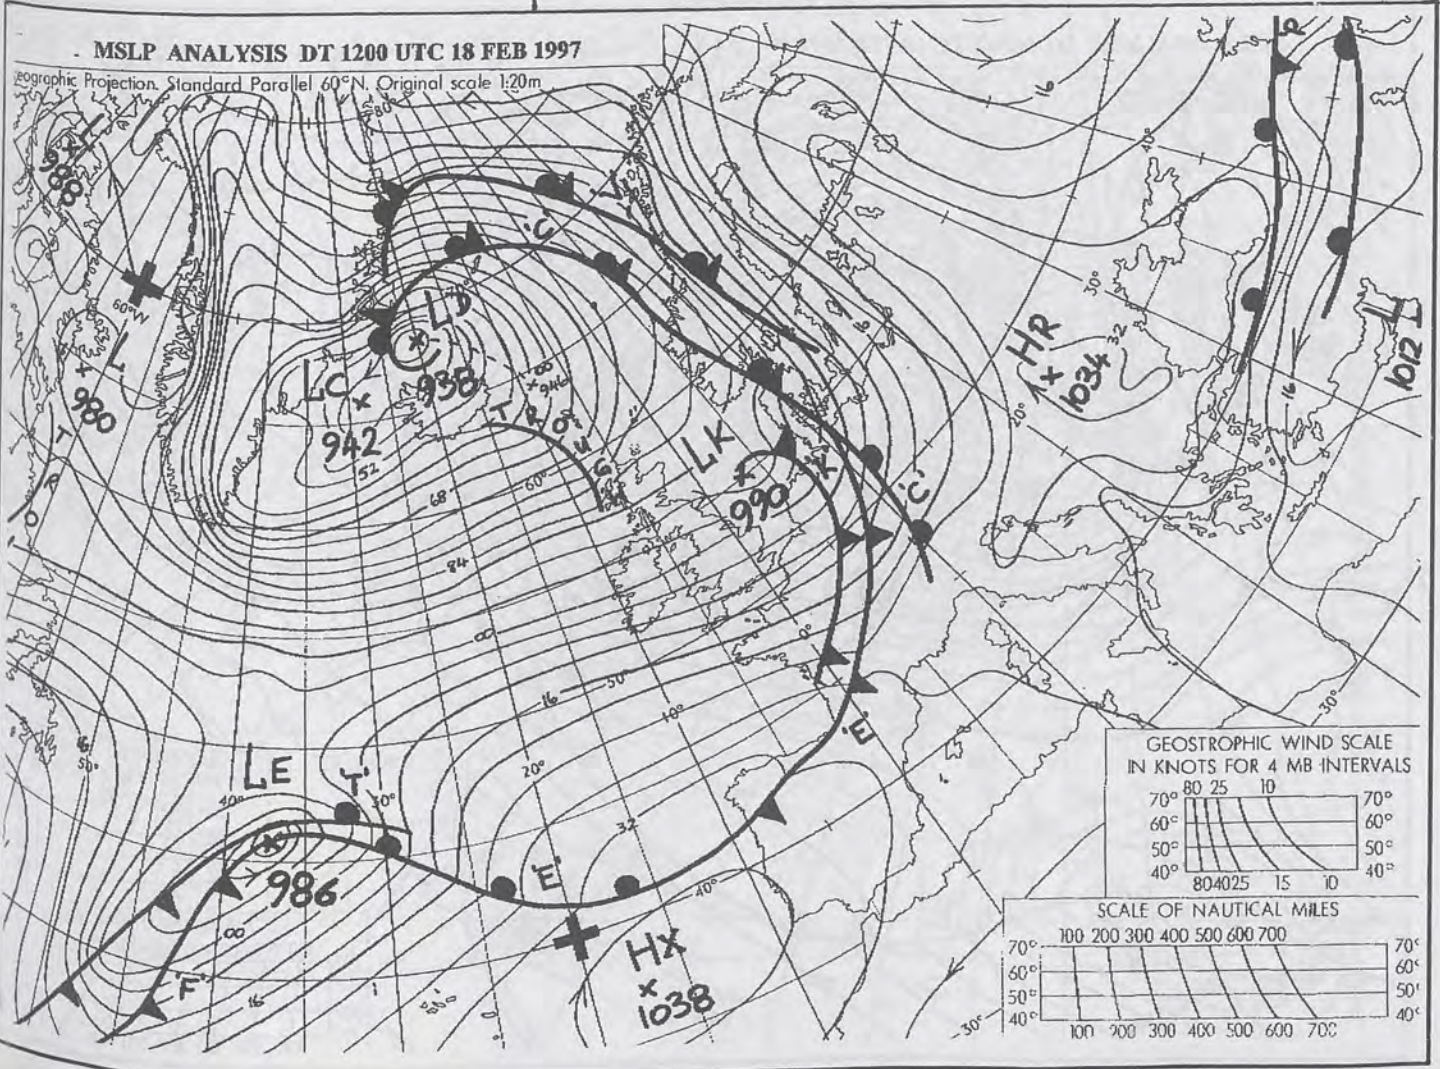 MSLP ANALYSIS DT 1200 UTC 18 FEB 1997
eographic Projection. Standard Parallel 60°N. Original scale 1:20m
80°
16
40°
L
988
'C'
60°W
L
980
LD
938
LC
942
52
946
TROUGH
TRO
60°
68
84
00
LK
990
'K'
'C'
HR
1034
32
30°
20°
16
L
1012
0°
50°
16
10°
'E'
20°
32
'E'
40°
LE
'T'
40°
30°
986
00
'F'
16
16
50°
HX
1038
30°
30°
GEOSTROPHIC WIND SCALE
IN KNOTS FOR 4 MB INTERVALS
80 25 10
70° 70°
60° 60°
50° 50°
40° 40°
80 40 25 15 10
SCALE OF NAUTICAL MILES
100 200 300 400 500 600 700
70° 70°
60° 60°
50° 50°
40° 40°
100 200 300 400 500 600 700